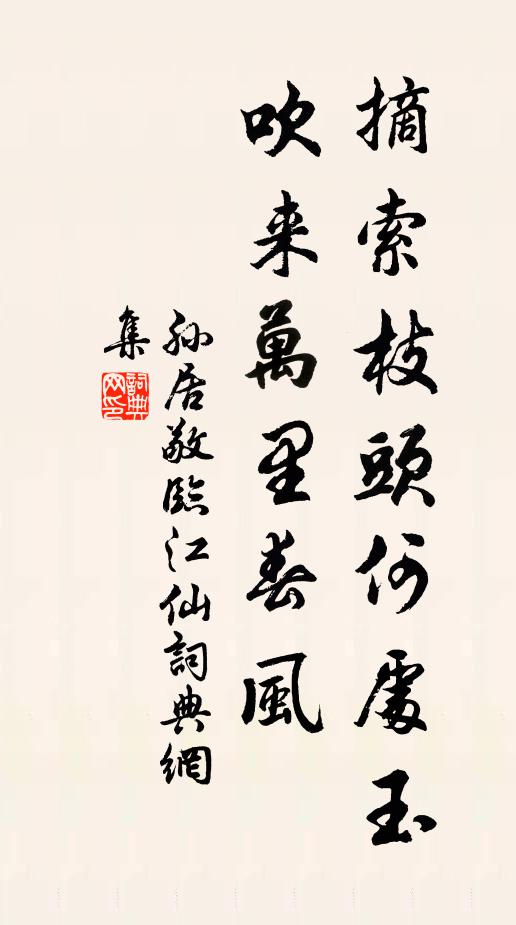 摘索枝頭何處玉
吹来萬里春風
孙居敬臨江仙詞典網
集
詞典网印